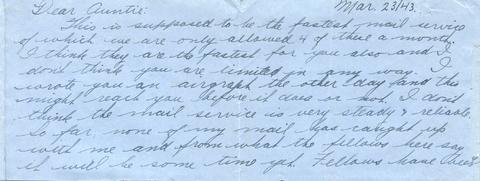 Dear Auntie:                Mar. 23/43.
This is supposed to be the fastest mail service
of which we are only allowed 4 of these a month.
I think they are the fastest for you also and I
don't think you are limited in any way. I
wrote you an airgraph the other day and this
might reach you before it does or not. I don't
think the mail service is very steady & reliable.
So far, none of my mail has caught up
with me and from what the fellows here say
it will be some time yet. Fellows have